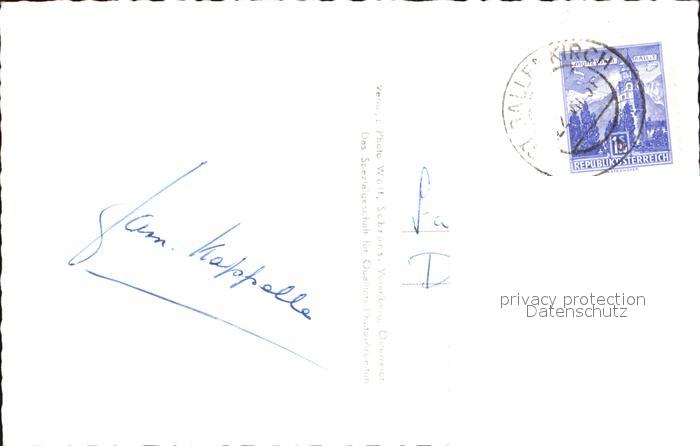 ST. GALLENKIRCH
1S
REPUBLIK ÖSTERREICH
Verlag: Photo Wolf, Schruns, Vorarlberg, Österreich
Das Spezialgeschäft für Qualitäts-Photoarbeiten
Fam. Kappelle
Fa
D
privacy protection
Datenschutz